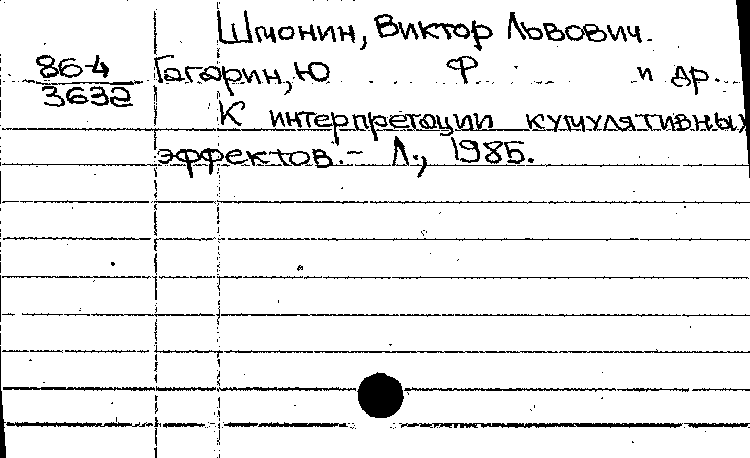 Шмонин, Виктор Львович.
86-4 Гагарин, Ю Ф и др.
3632
К интерпретации кумулятивных
эффектов. - Л., 1985.